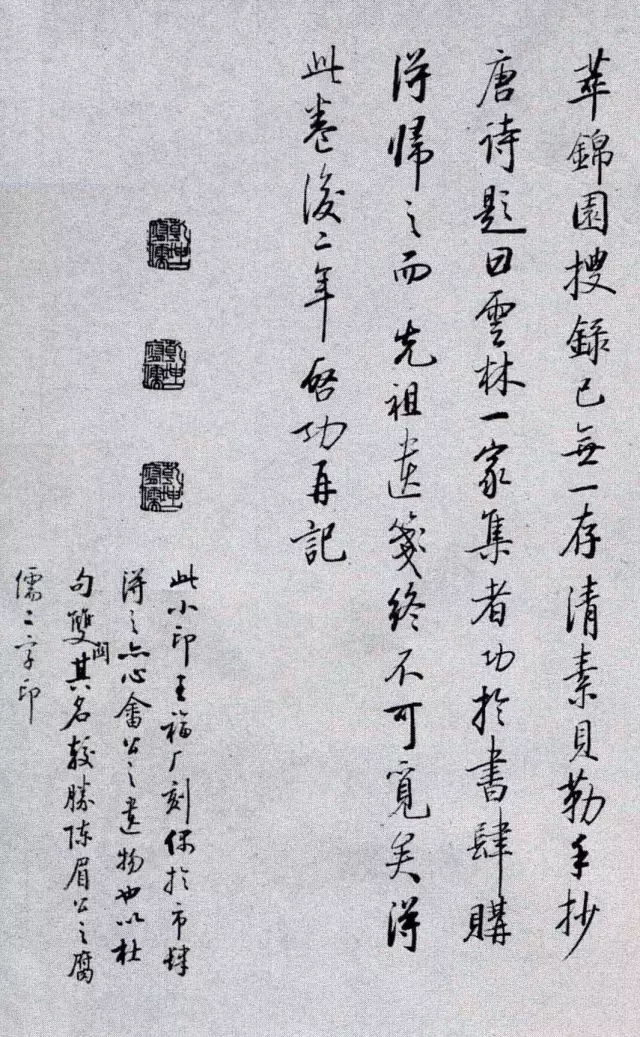 萃錦園搜錄已無一存清素貝勒手抄
唐詩題曰雲林一家集者功於書肆購
得歸之而先祖遺箋終不可覓矣得
此卷後二年啓功再記
此小印王福厂刻偶於市肆
得之亦心畬公之遺物也以杜
句雙關其名較勝陳眉公之腐
儒二字印